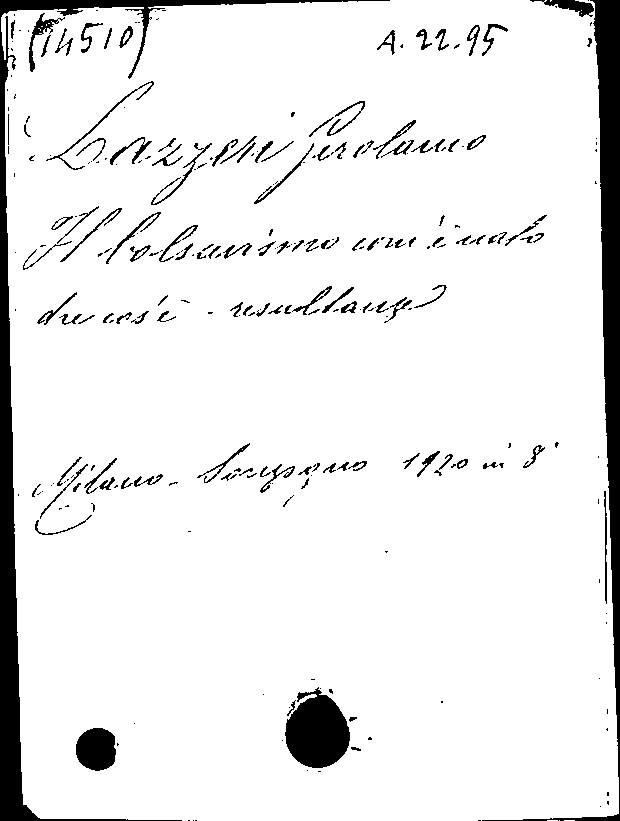 (14510) A. 22.95
Lazzeri Gerolamo
Il bolscevismo com'è nato
che cos'è - resultanze
Milano - Sonzogno 1920 in 8°